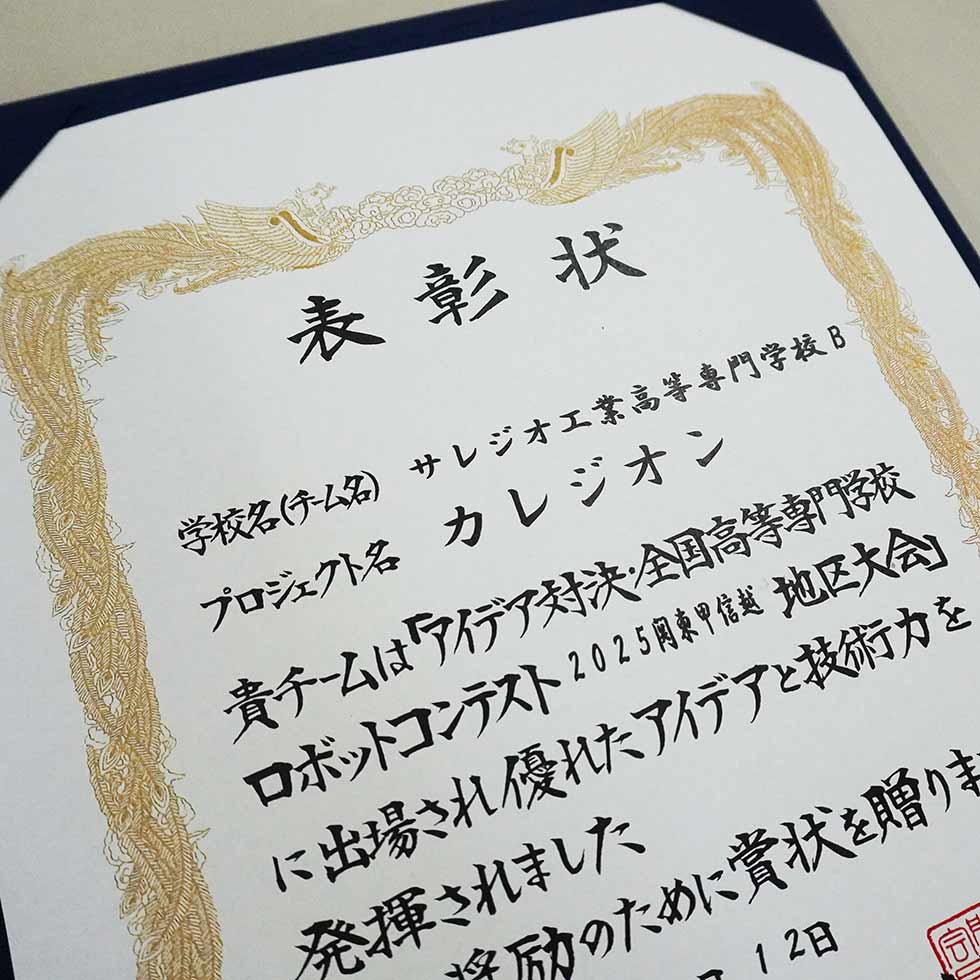 表彰状
学校名(チーム名) サレジオ工業高等専門学校B
プロジェクト名 カレジオン
貴チームは「アイデア対決・全国高等専門学校
ロボットコンテスト2025関東甲信越地区大会」
に出場され優れたアイデアと技術力を
発揮されました
奨励のために賞状を贈りま
12日